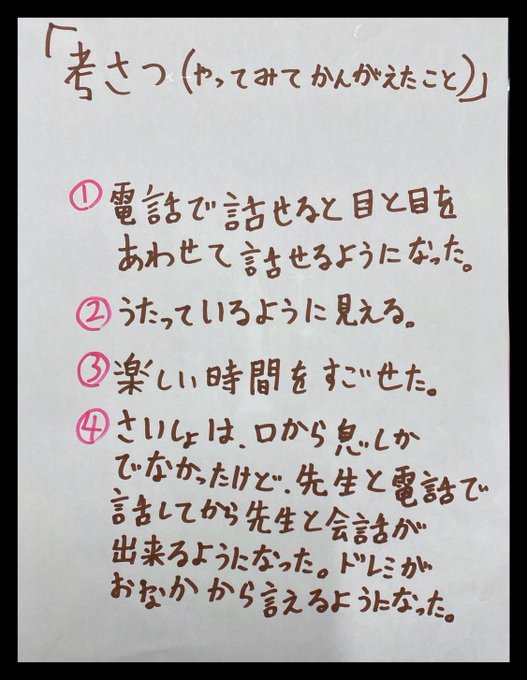 「考さつ(やってみてかんがえたこと)」
① 電話で話せると目と目を
あわせて話せるようになった。
② うたっているように見える。
③ 楽しい時間をすごせた。
④ さいしょは、口から息しか
でなかったけど、先生と電話で
話してから先生と会話が
出来るようになった。ドレミが
おなかから言えるようになった。